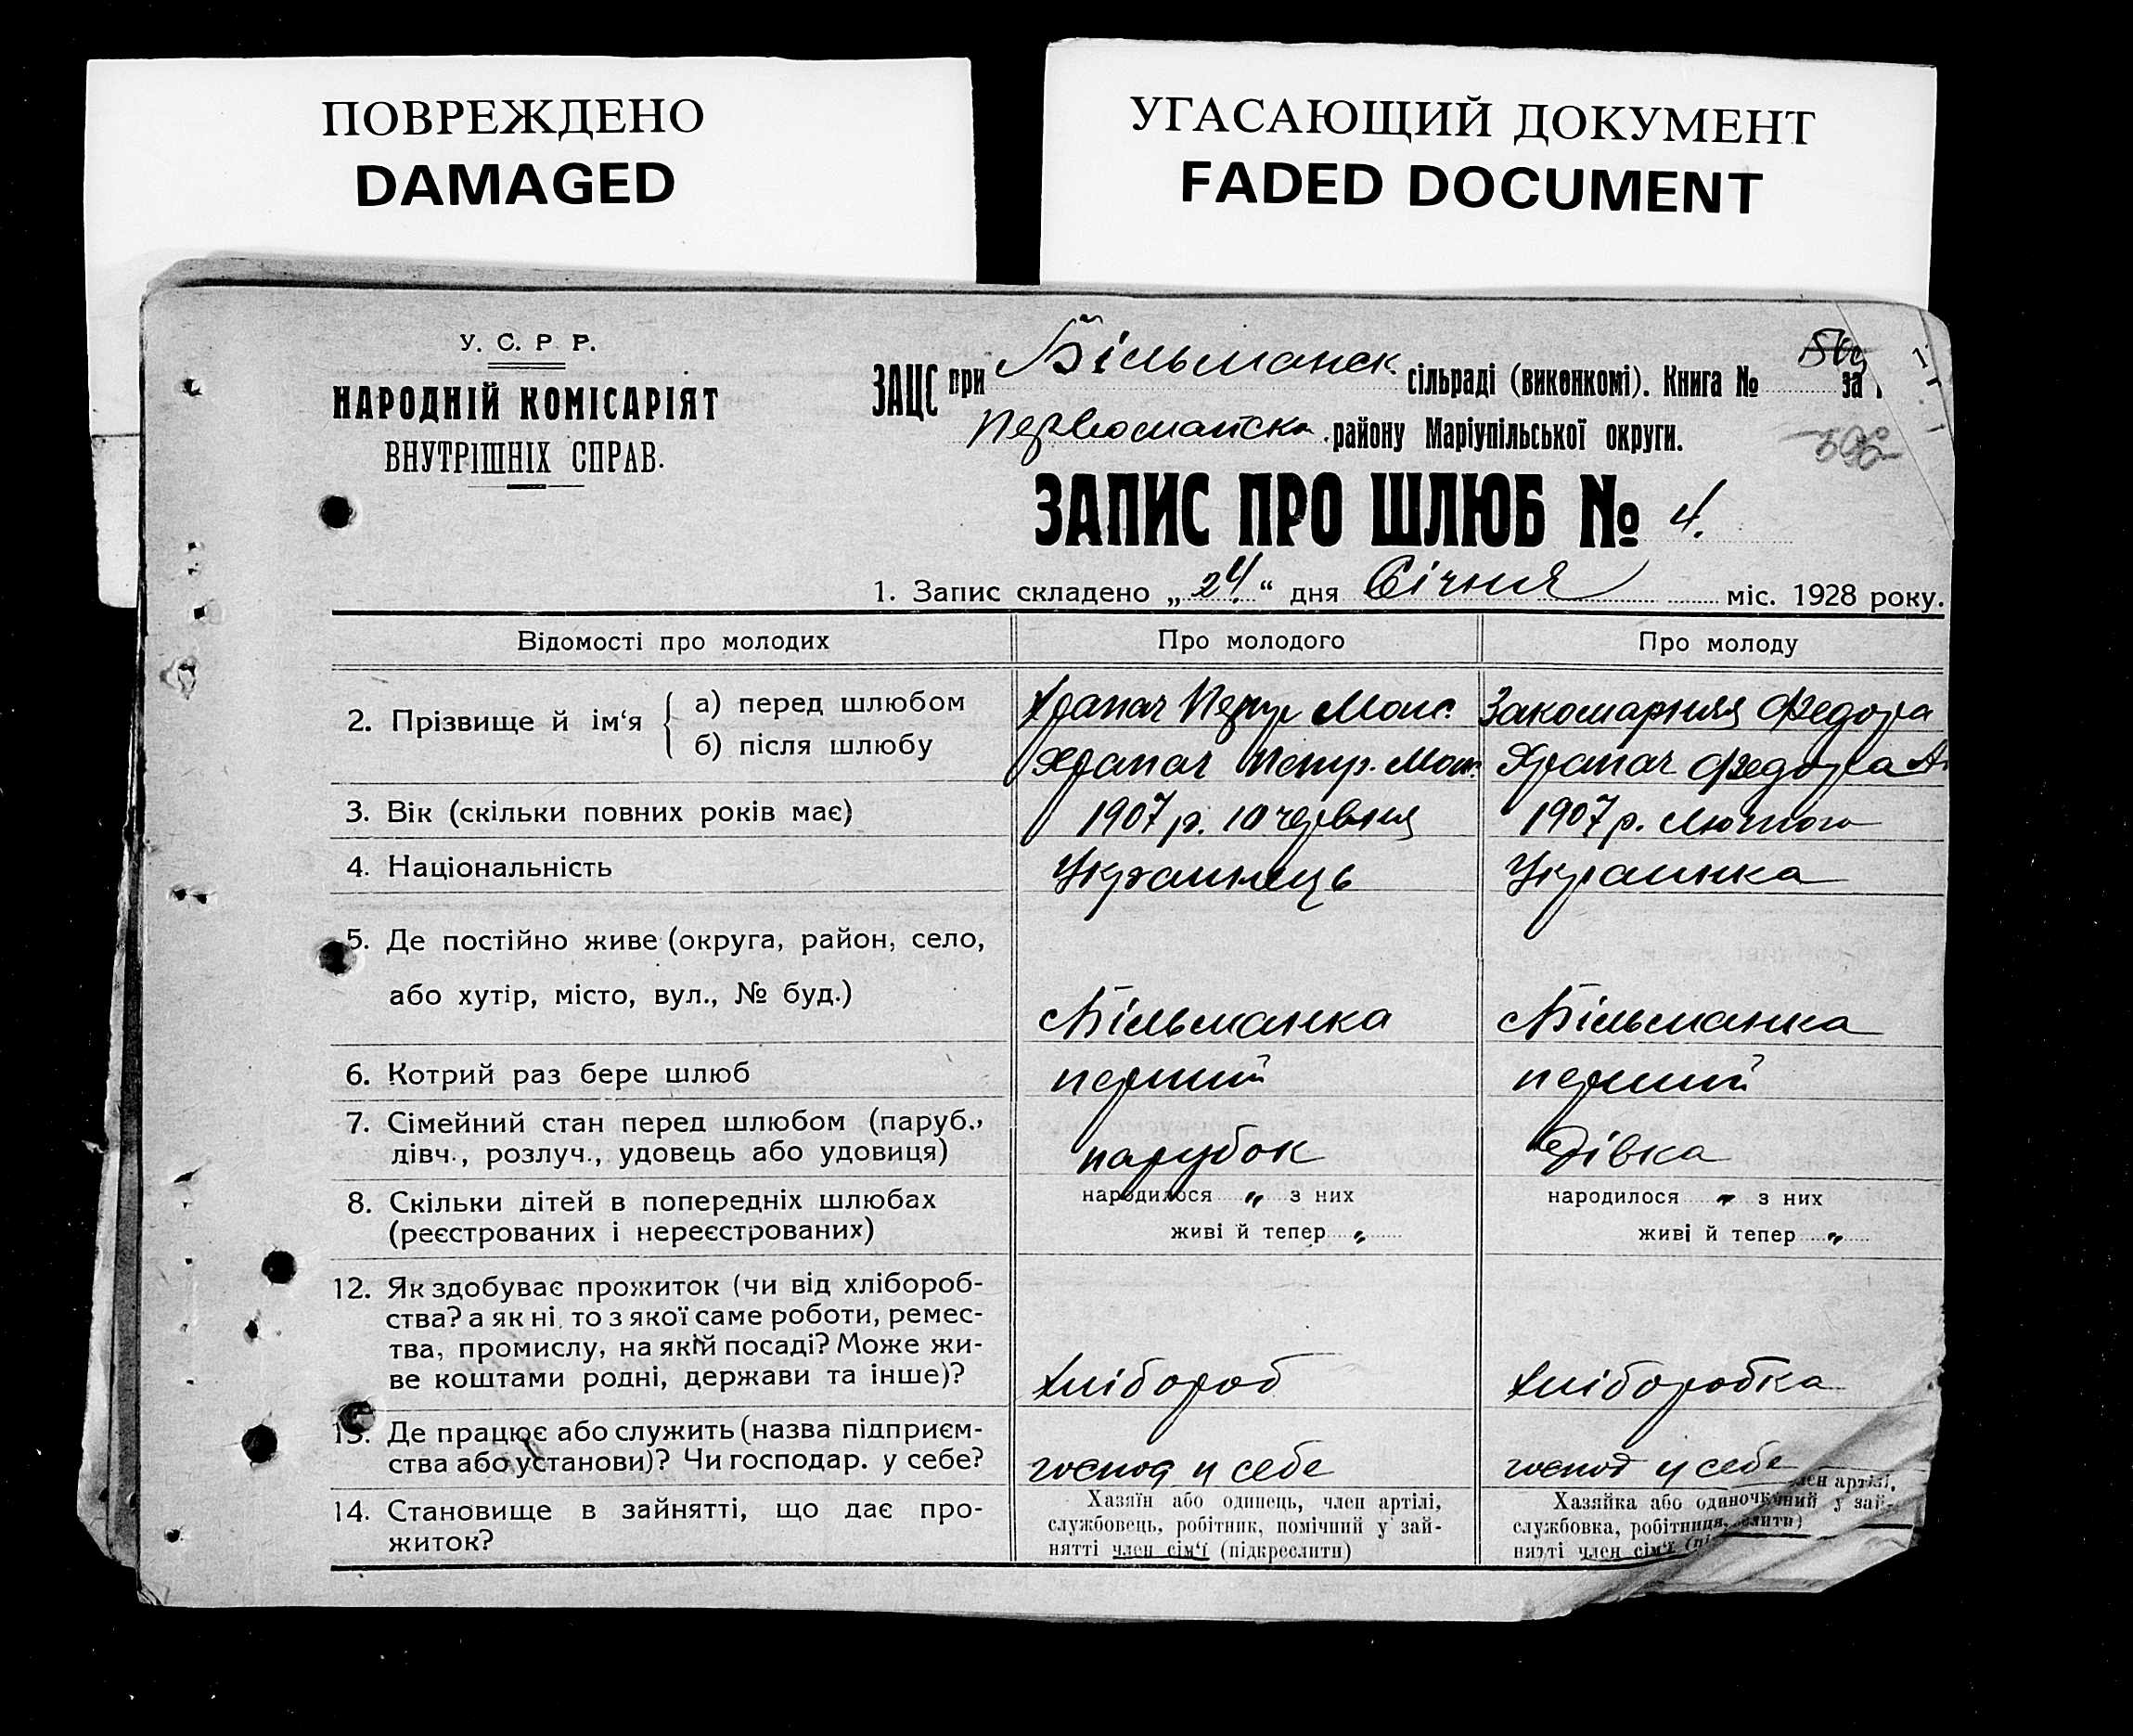 ПОВРЕЖДЕНО
DAMAGED
УГАСАЮЩИЙ ДОКУМЕНТ
FADED DOCUMENT
У. С. Р. Р.
НАРОДНІЙ КОМІСАРІЯТ
ВНУТРІШНІХ СПРАВ.
ЗАЦС при Більманск. сільраді (виконкомі). Книга № за
Первомайськ. району Маріупільської округи.
ЗАПИС ПРО ШЛЮБ № 4.
1. Запис складено „24“ дня Січня міс. 1928 року.
Відомості про молодих Про молодого Про молоду
2. Прізвище й ім‘я { а) перед шлюбом Храпач Петр Моис. Закомарня Федора
б) після шлюбу Храпач Петр. Моис. Храпач Федора А.
3. Вік (скільки повних років має) 1907 р. 10 червня 1907 р. Лютого
4. Національність Украинець Украинка
5. Де постійно живе (округа, район, село,
або хутір, місто, вул., № буд.) Більманка Більманка
6. Котрий раз бере шлюб перший перший
7. Сімейний стан перед шлюбом (паруб.,
дівч., розлуч., удовець або удовиця) парубок Дівка
8. Скільки дітей в попередніх шлюбах народилося „ з них народилося „ з них
(реєстрованих і нереєстрованих) живі й тепер „ живі й тепер „
12. Як здобуває прожиток (чи від хлібороб-
ства? а як ні, то з якої саме роботи, ремес-
тва, промислу, на якій посаді? Може жи-
ве коштами родні, держави та інше)? Хлібороб Хліборобка
13. Де працює або служить (назва підприєм-
ства або установи)? Чи господар. у себе? господ у себе господ у себе
14. Становище в зайнятті, що дає про-
житок?
Хазяїн або одинець, член артілі,
службовець, робітник, помічний у зай-
нятті член сім‘ї (підкреслити)
Хазяйка або одиночк член артілі,
службовка, робітниця, чний у зай-
нятті член сім‘ї (п лити)